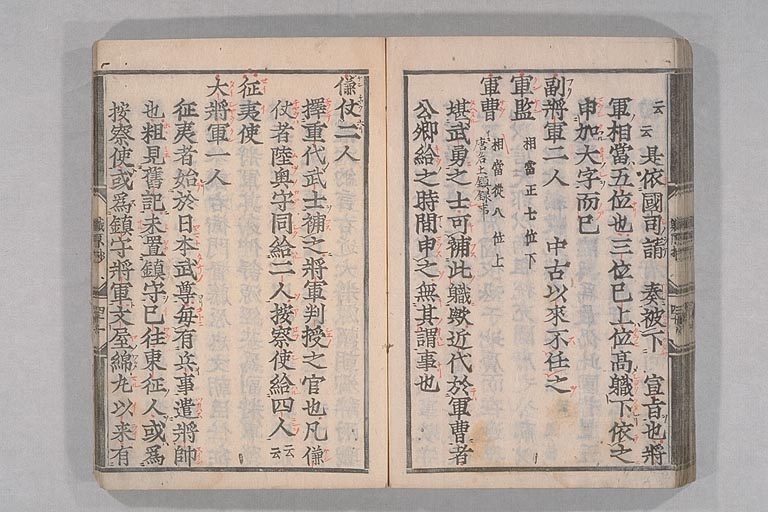 云云是依國司請　奏被下　宣旨也將
軍相當五位也三位已上位高軄下依之
申加大字而已
副將軍二人　中古以來不任之
軍監　相當正七位下
軍曹　相當從八位上
堪武勇之士可補此軄歟近代於軍曹者
公卿給之時間申之無其謂事也
傔仗二人
擇重代武士補之將軍判授之官也凡傔
仗者陸奥守同給二人按察使給四人云云
征夷使
大將軍一人
征夷者始於日本武尊毎有兵事遣將帥
也粗見舊記未置鎮守已往東征人或爲
按察使或爲鎮守將軍文屋綿丸以来有